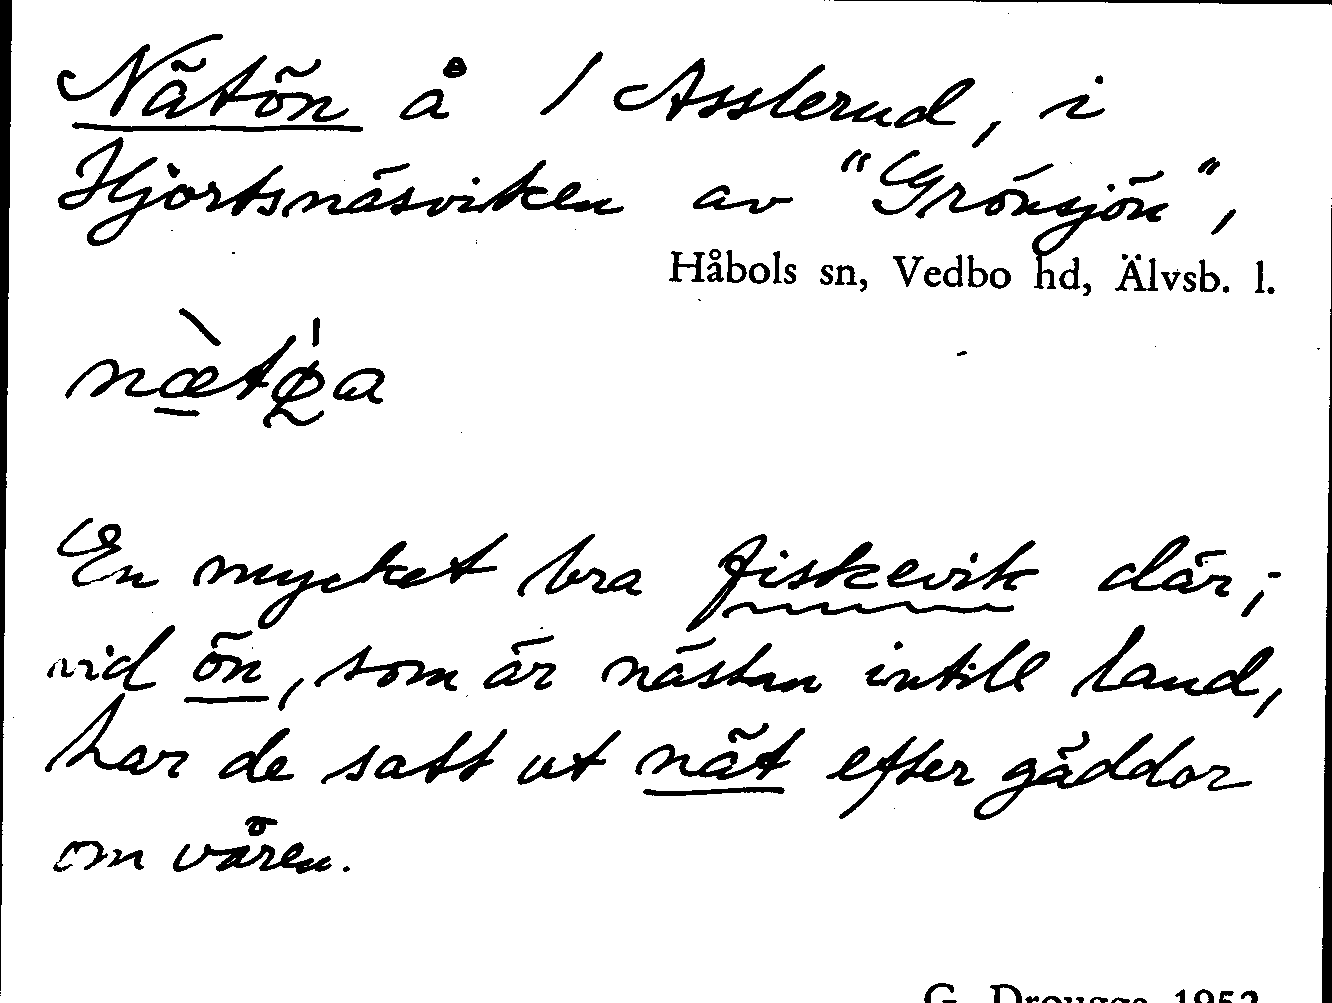 Nätön å / Asslerud, i
Hjortsnäsviken av "Grönsjön",
Håbols sn, Vedbo hd, Älvsb. l.
En mycket bra fiskevik där;
vid ön, som är nästan intill land,
har de satt ut nät efter gäddor
om våren.
G. Drougge 1952